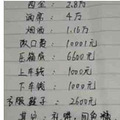 四金：2.8万
酒席：4万
烟酒：1.16万
改口费：10001元
压箱底：6600元
上车钱：1000元
下车钱：1000元
衣服鞋子：2600元